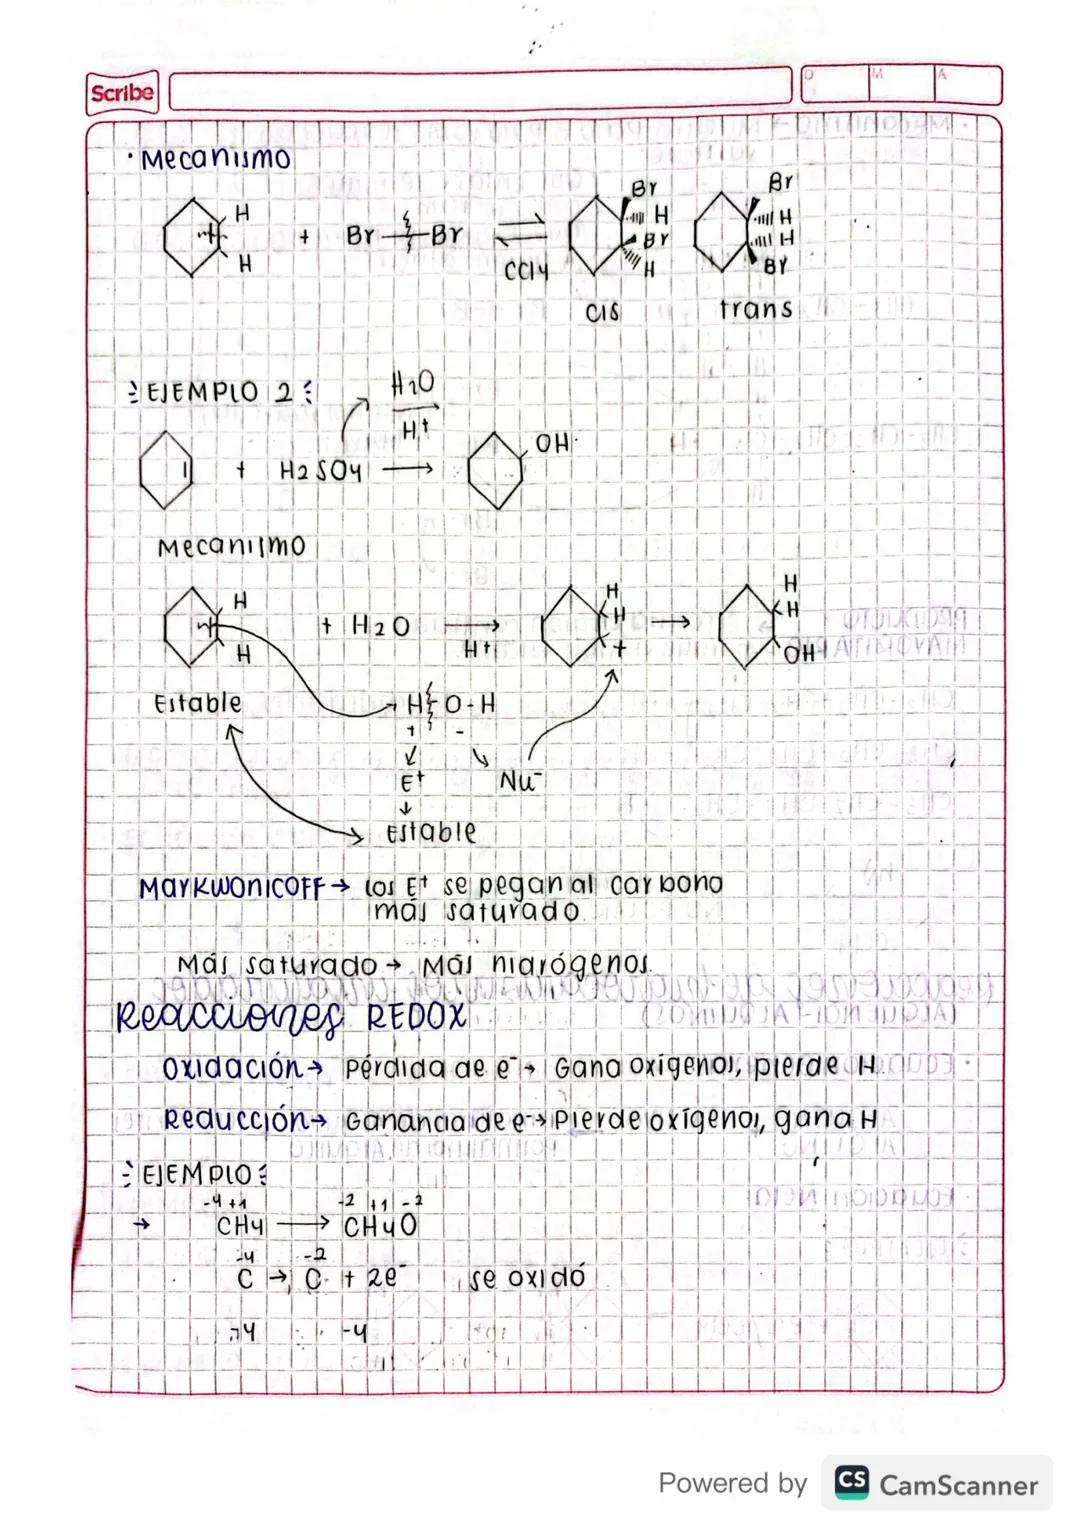 Scribe
D M A
· Mecanismo
H
H
+ Br Br
CCl4
Br
H
Br
H
cis
Br
H
H
Br
trans
EJEMPLO 2
H2O
H+
+ H2SO4 →
OH
Mecanismo
H
H
+ H2O
H+
H
H
+
H
H
OH
Estable
H O-H
+ -
E+
Nu-
Estable
Markwonicoff → los E+ se pegan al carbono
más saturado.
Más saturado → Más hidrógenos.
Reacciones REDOX
Oxidación → Pérdida de e- → Gana oxígenos, pierde H.
Reducción → Ganancia de e- → Pierde oxígenos, gana H
EJEMPLO
-4 +1 -2 +1 -2
→ CH4 → CH4O
-4 -2
C → C + 2e- se oxidó
-4 -4
Powered by CS CamScanner